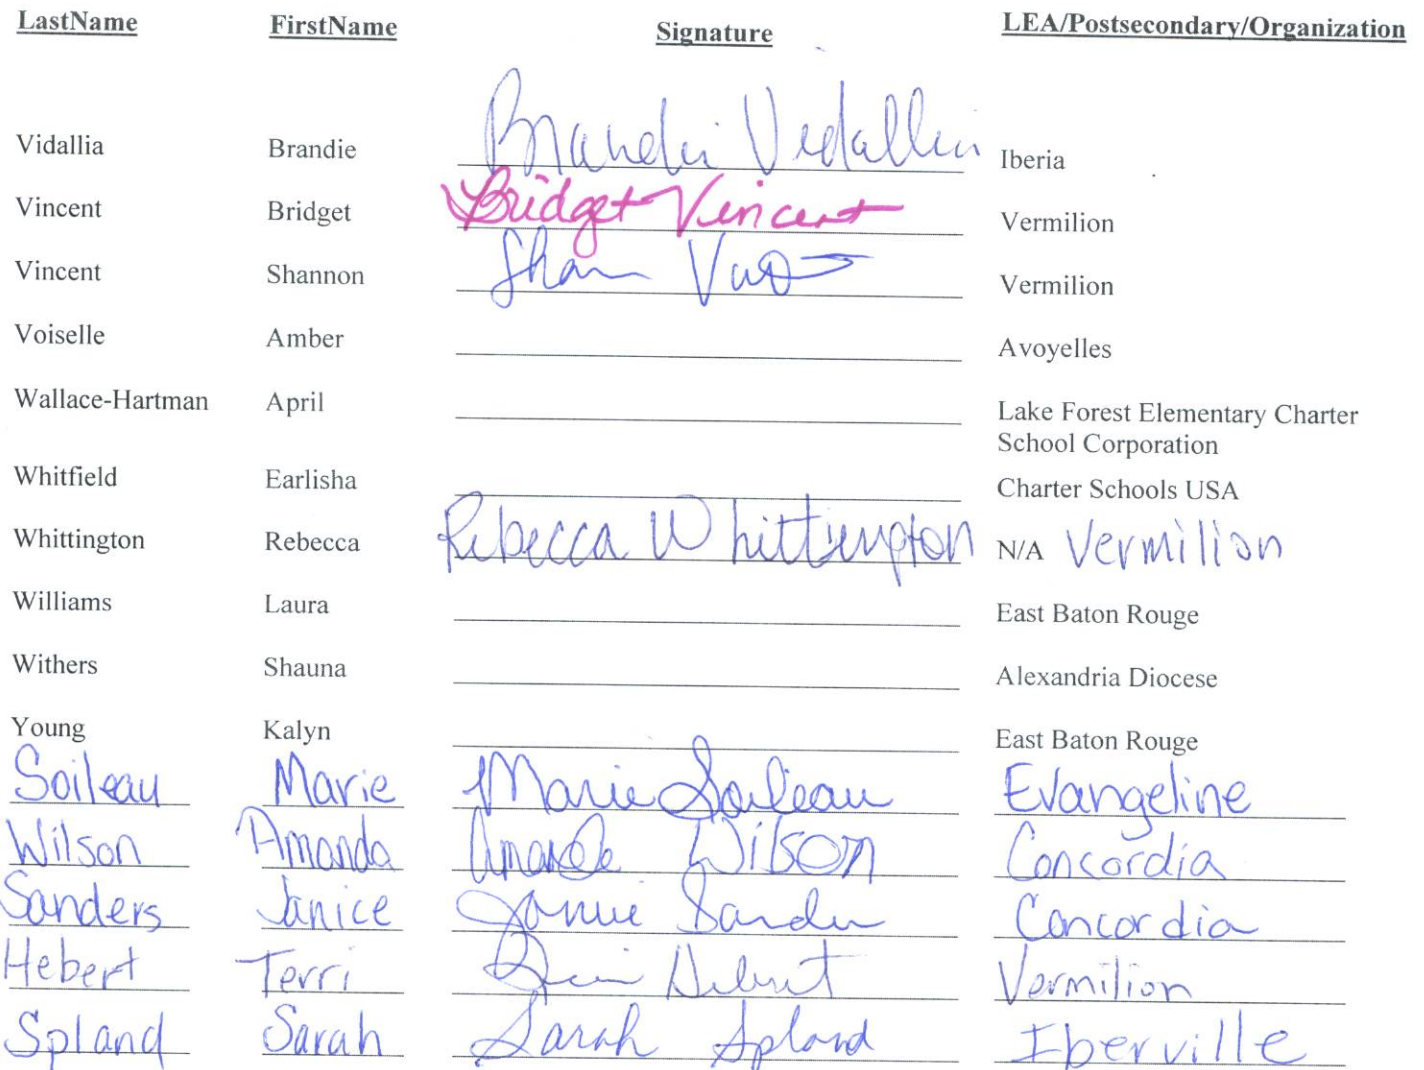 LastName FirstName Signature LEA/Postsecondary/Organization
Vidallia Brandie Brandie Vidallia Iberia
Vincent Bridget Bridget Vincent Vermilion
Vincent Shannon Shan Vermilion
Voiselle Amber Avoyelles
Wallace-Hartman April Lake Forest Elementary Charter
School Corporation
Whitfield Earlisha Charter Schools USA
Whittington Rebecca Rebecca Whittington N/A Vermilion
Williams Laura East Baton Rouge
Withers Shauna Alexandria Diocese
Young Kalyn East Baton Rouge
Soileau Marie Marie Soileau Evangeline
Wilson Amanda Amanda Wilson Concordia
Sanders Janice Janice Sanders Concordia
Hebert Terri Hebert Vermilion
Spland Sarah Sarah Spland Iberville